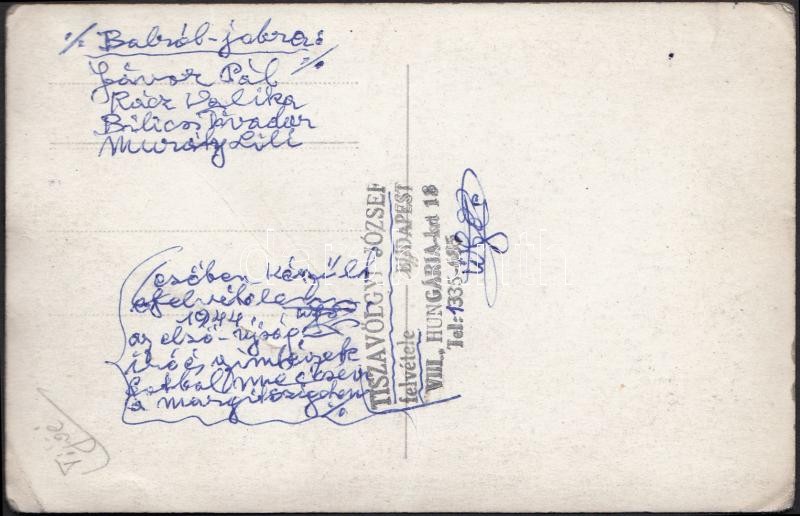 ./. Balról-jobra:
Jávor Pál ./.
Rácz Valika
Bilicsi Tivadar
Murány Lili
esőben készült
a felvétele
1944.
az első-újság-
író és színészek
footbal meccsen
a margitszigeten
TISZAVÖLGYI JÓZSEF
felvétele BUDAPEST
VIII., HUNGÁRIA-krt 18
Tel: 1335-